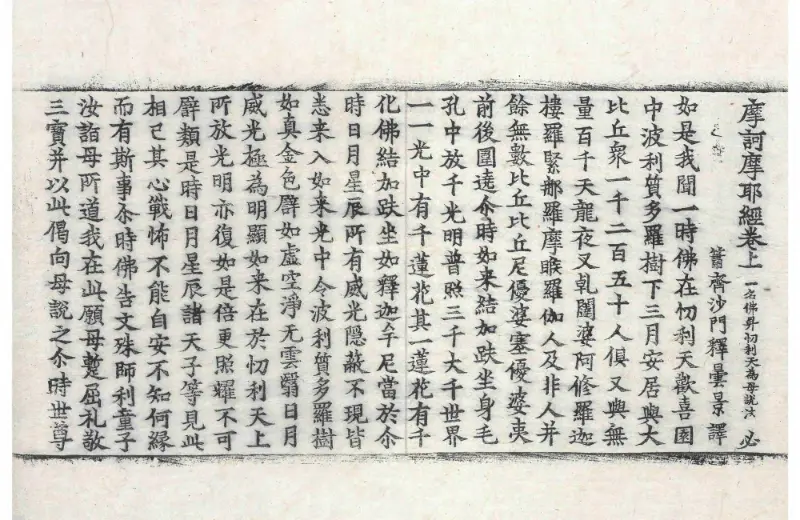 摩訶摩耶經卷上 一名佛昇忉利天為母說法 必
蕭齊沙門釋曇景譯
如是我聞一時佛在忉利天歡喜園
中波利質多羅樹下三月安居與大
比丘衆一千二百五十人俱又與無
量百千天龍夜叉乹闥婆阿修羅迦
樓羅緊𨚗羅摩睺羅伽人及非人并
餘無數比丘比丘尼優婆塞優婆夷
前後圍遶尒時如來結加趺坐身毛
孔中放千光明普照三千大千世界
一一光中有千蓮花其一蓮花有千
化佛結加趺坐如釋迦牟尼當於尒
時日月星辰所有威光隱蔽不現皆
悉来入如来光中令波利質多羅樹
如真金色譬如虛空淨无雲翳日月
威光極為明顯如来在於忉利天上
所放光明亦復如是倍更照耀不可
譬類是時日月星辰諸天子等見此
相已其心戰怖不能自安不知何緣
而有斯事尒時佛告文殊師利童子
汝詣母所道我在此願母蹔屈礼敬
三寶并以此偈向母說之尒時世尊